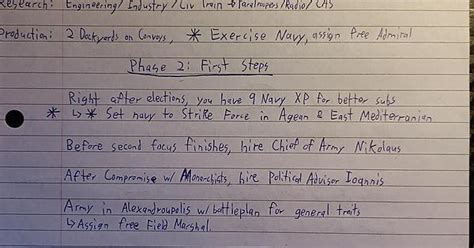 Research: Engineering/ Industry/ Civ Train → Paratroopers/Radio/ CAS
Production: 2 Dockyards on Convoys, * Exercise Navy, assign free Admiral
Phase 2: First Steps
Right after elections, you have 9 Navy XP for better subs
* ↳ * Set navy to Strike Force in Agean & East Mediterranian
Before second focus finishes, hire Chief of Army Nikolaus
After Compromise w/ Monarchists, hire Political Advisor Ioannis
Army in Alexandroupolis w/ battleplan for general traits
↳ Assign free Field Marshal.